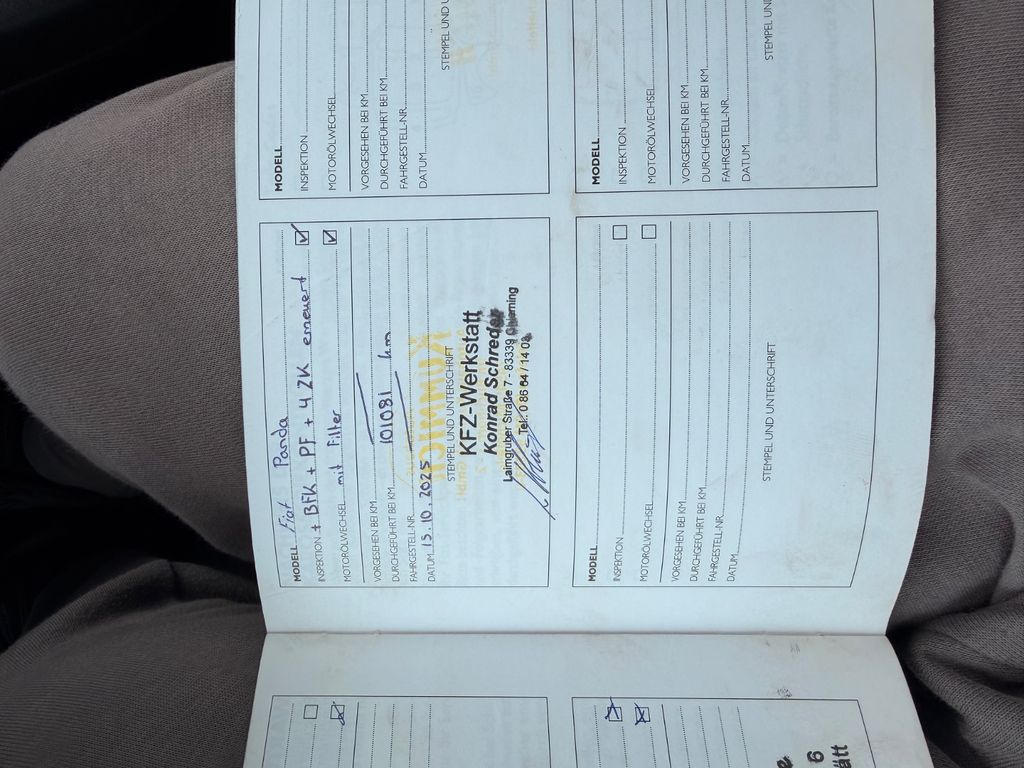 MODELL Fiat Panda
INSPEKTION + BFK + PF + 4 ZK erneuert
MOTORÖLWECHSEL mit Filter
VORGESEHEN BEI KM
DURCHGEFÜHRT BEI KM 101081 km
FAHRGESTELL-NR.
DATUM 15.10.2025
STEMPEL UND UNTERSCHRIFT
KFZ-Werkstatt
Konrad Schreder
Laimgruber Straße 7 - 83339 Chieming
Tel. 0 86 64 / 14 03
MODELL
INSPEKTION
MOTORÖLWECHSEL
VORGESEHEN BEI KM
DURCHGEFÜHRT BEI KM
FAHRGESTELL-NR.
DATUM
STEMPEL UND UNTERSCHRIFT
MODELL
INSPEKTION
MOTORÖLWECHSEL
VORGESEHEN BEI KM
DURCHGEFÜHRT BEI KM
FAHRGESTELL-NR.
DATUM
STEMPEL UND U
MODELL
INSPEKTION
MOTORÖLWECHSEL
VORGESEHEN BEI KM
DURCHGEFÜHRT BEI KM
FAHRGESTELL-NR.
DATUM
STEMPEL UN
6
ätt